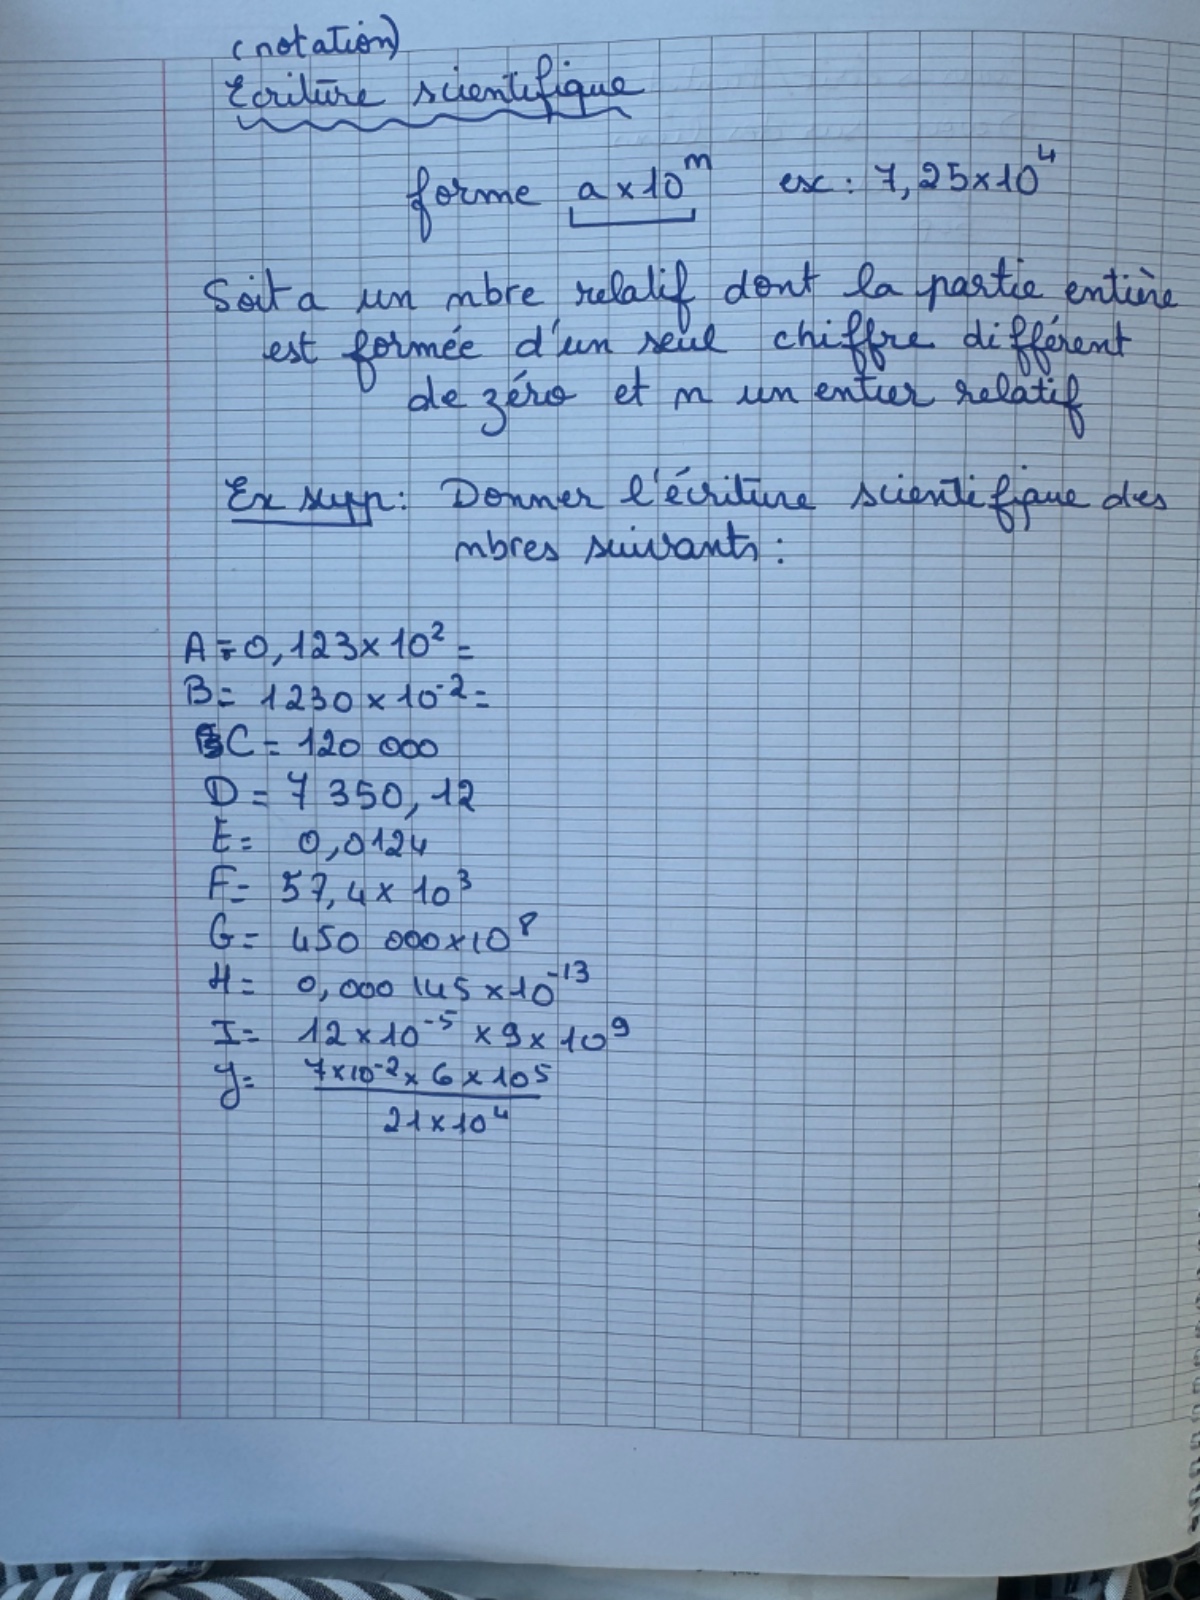 (notation)
Ecriture scientifique
forme a x 10ⁿ ex : 7,25x10⁴
Soit a un nbre relatif dont la partie entière
est formée d'un seul chiffre différent
de zéro et n un entier relatif
Ex supp: Donner l'écriture scientifique des
nbres suivants :
A = 0,123x10² =
B = 1230 x 10⁻² =
C = 120 000
D = 7 350,12
E = 0,0124
F = 57,4 x 10³
G = 450 000x10⁸
H = 0,000 145 x 10⁻¹³
I = 12 x 10⁻⁵ x 9 x 10⁹
J = 7x10⁻² x 6 x 10⁵
21 x 10⁴